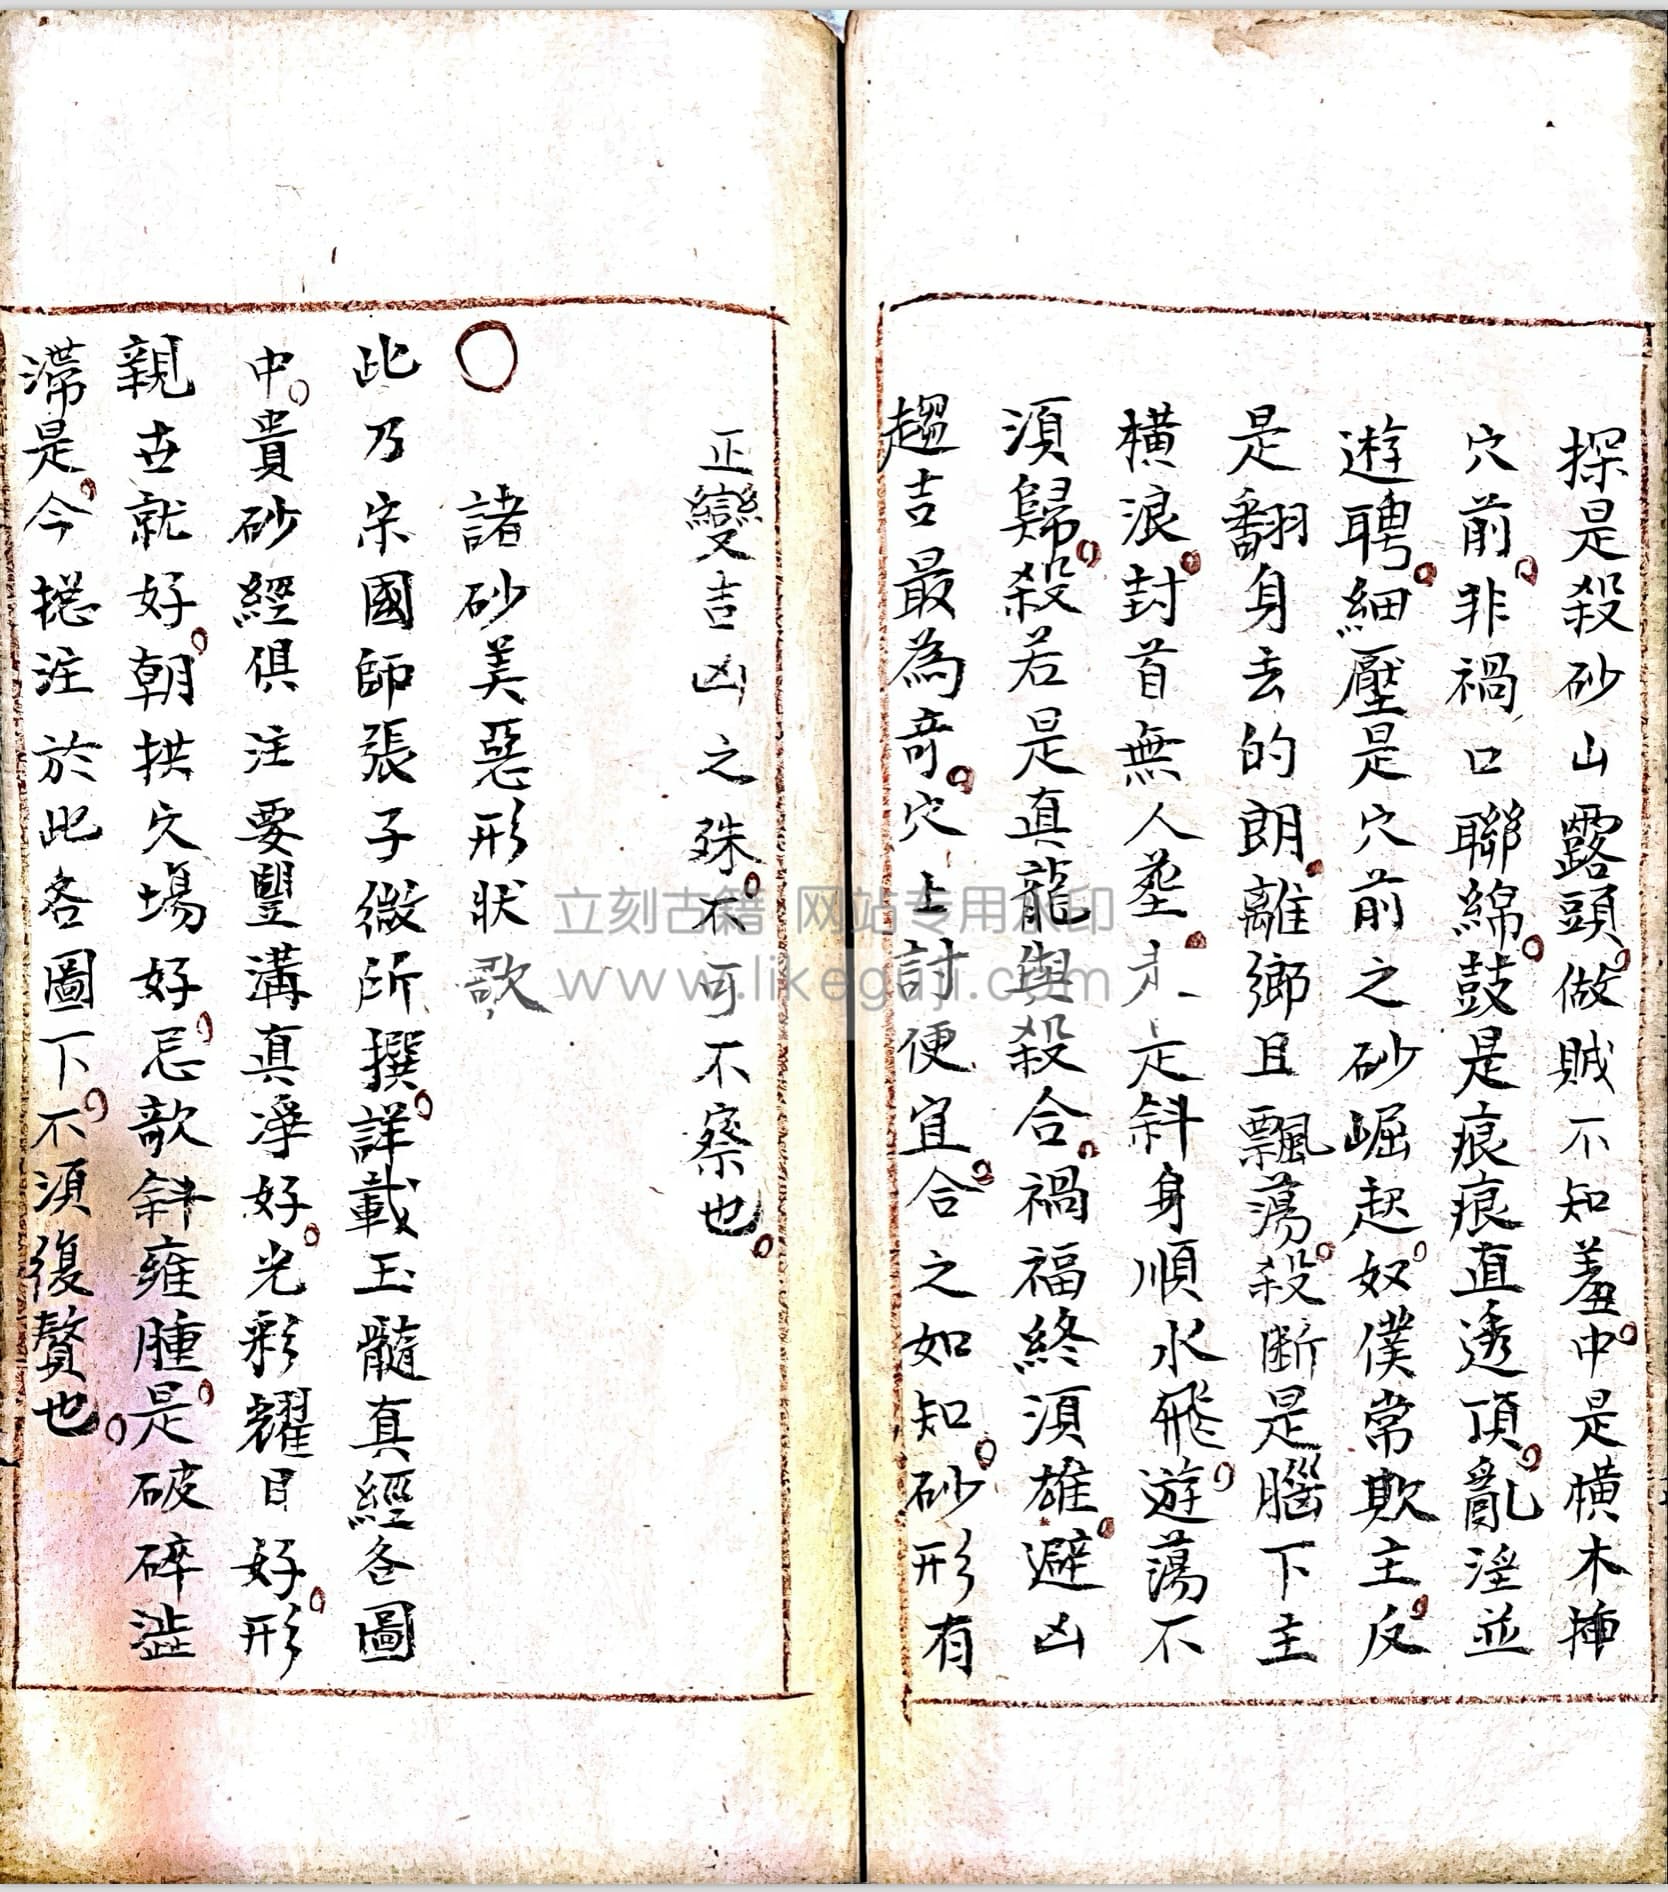 探是殺砂山露頭做賊不知羞中是橫木揷
穴前非禍口聯綿鼓是痕痕直透頂亂淫並
遊聘細壓是穴前之砂崛起奴僕常欺主反
是翻身去的朗離鄉且飄蕩殺断是腦下主
橫浪封首無人塟走是斜身順水飛遊蕩不
須歸殺若是真龍與殺合禍福終須雄避凶
趨吉最為竒穴上討便宜合之如知砂形有
正變吉凶之殊不可不察也
諸砂美惡形狀歌
此乃宋國師張子微所撰詳載玉髓真經各圖
中貴砂經俱注要豐溝真淨好光彩耀目好形
親古就好朝拱穴場好忌欹斜雍腫是破碎澁
滯是今摠注於此各圖下不須復贅也
立刻古籍 网站专用水印
www.likeguji.com